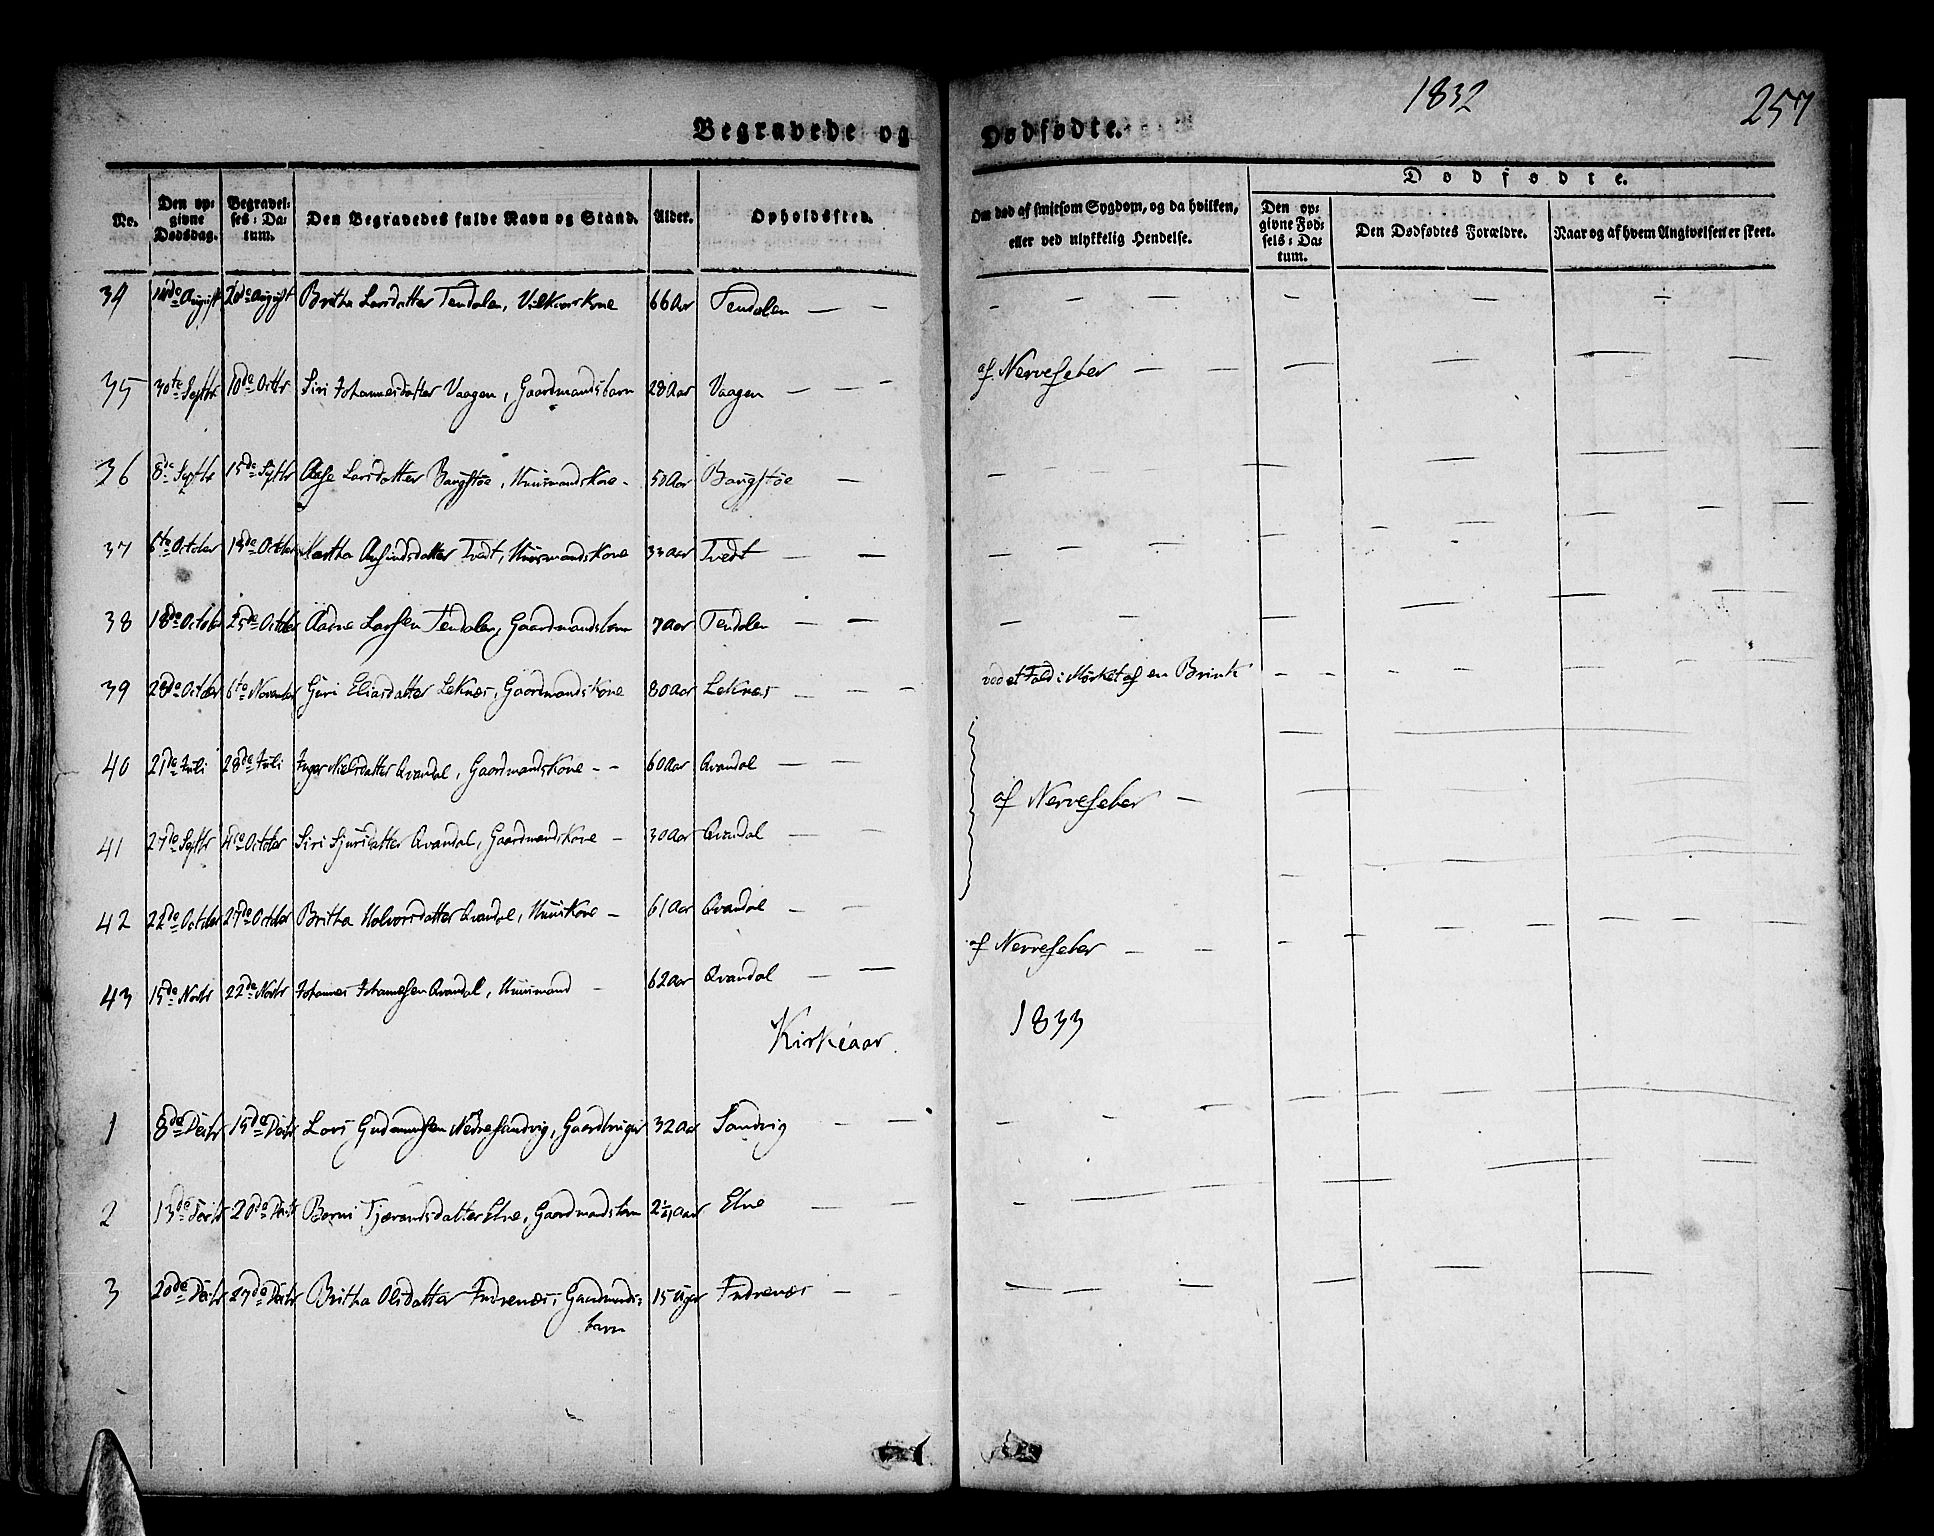 1832
257
Begravede og Dødfødte.
No. Den opgivne Dødsdag. Begravelses-Datum. Den Begravedes fulde Navn og Stand. Alder. Opholdssted. Om død af smitsom Sygdom, og da hvilken, eller ved ulykkelig Hendelse. Dødfødte. Den opgivne Fødsels-Datum. Den Dødfødtes Forældre. Naar og af hvem Angivelsen er skeet.
34 August 20de August Britha Larsdatter Tendalen, Vilkaarskone 66 Aar Tendalen — —
35 30te Septbr 10de Octbr Siri Johannesdatter Vaagen, Gaardmandsbarn 28 Aar Vaagen — — — af Nervefeber — —
36 8de Septbr 15de Septbr Aase Larsdatter Baugstøe, Huusmandskone - 50 Aar Baugstøe —
37 6te October 13de October Martha Anfindsdatter Tvedt, Huusmandskone 33 Aar Tvedt — —
38 18de October 25de October Aadne Larssen Tendalen, Gaardmandsbarn 7 Aar Tendalen — —
39 28de October 6te November Guri Eliasdatter Leknes, Gaardmandskone 80 Aar Leknes — — ved et Fald i Mørket af en Brink
40 21de Juli 28de Juli Inger Nielsdatter Qvandal, Gaardmandskone - - 60 Aar Qvandal — —
af Nervefeber —
41 27de Septbr 4de October Siri Sjursdatter Qvandal, Gaardmandskone — 30 Aar Qvandal — —
42 22de October 27de October Britha Halvorsdatter Qvandal, Huuskone — 61 Aar Qvandal — —
43 15de Novbr 22de Novbr Johannes Johannessen Qvandal, Huusmand — 62 Aar Qvandal — — af Nervefeber — —
Kirkeaar 1833
1 8de Decbr 15de Decbr Lars Gudmundsen Nedresandvig, Gaardbruger 32 Aar Sandvig — —
2 13de Decbr 20de Decbr Berni Tjærandsdatter Etne, Gaardmandsbarn 2¼ Aar Etne — —
3 20de Decbr 27de Decbr Britha Olsdatter Indrenæs, Gaardmands-
barn 15 Uger Indrenæs — —